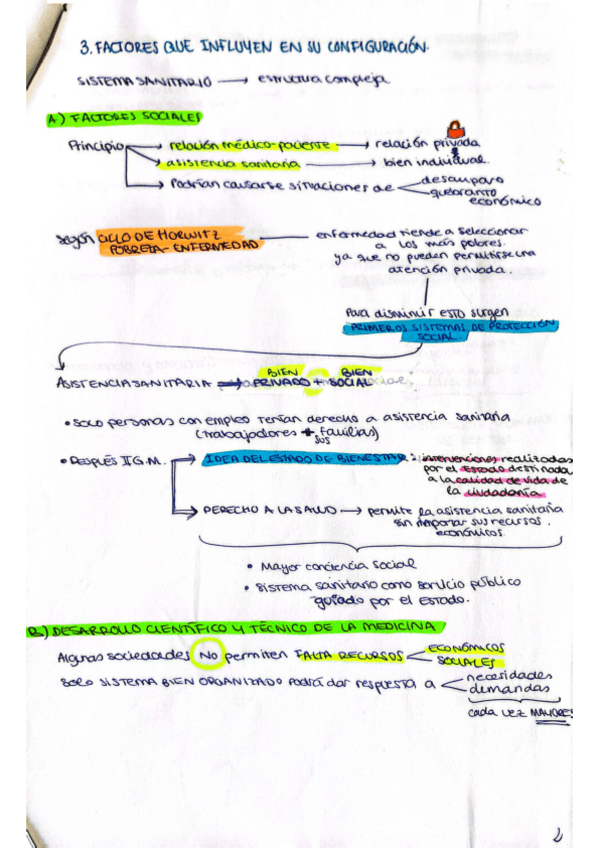 3. FACTORES QUE INFLUYEN EN SU CONFIGURACIÓN.
SISTEMA SANITARIO → estructura compleja
A) FACTORES SOCIALES
Principio → relación médico-paciente → relación privada
→ asistencia sanitaria → bien individual.
→ Podrían causarse situaciones de < desamparo
quebranto
económico
según CICLO DE HORWITZ
POBREZA - ENFERMEDAD
enfermedad tiende a seleccionar
a los más pobres.
ya que no pueden permitirse una
atención privada.
Para disminuir esto surgen
PRIMEROS SISTEMAS DE PROTECCIÓN
SOCIAL
BIEN BIEN
ASISTENCIA SANITARIA → PRIVADO + SOCIAL
• Solo personas con empleo tenían derecho a asistencia sanitaria
(trabajadores + familias)
sus
• DESPUÉS II G.M. → IDEA DEL ESTADO DE BIENESTAR: intervenciones realizadas
por el Estado destinada
a la calidad de vida de
la ciudadanía.
→ DERECHO A LA SALUD → permite la asistencia sanitaria
sin importar sus recursos.
económicos.
• Mayor conciencia social
• Sistema sanitario como servicio público
guiado por el Estado.
B) DESARROLLO CIENTÍFICO Y TÉCNICO DE LA MEDICINA
Algunas sociedades NO permiten FALTA RECURSOS < ECONÓMICOS
SOCIALES
SOLO SISTEMA BIEN ORGANIZADO podrá dar respuesta a < necesidades
demandas
cada vez MAYORES
2